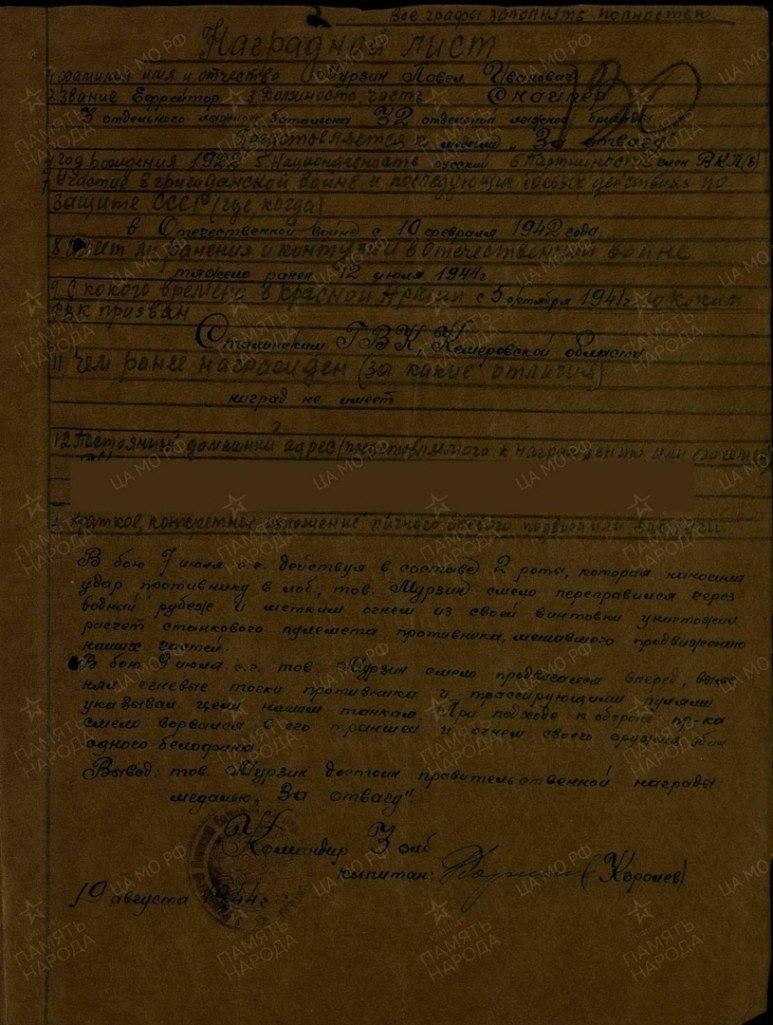 Все графы заполнять полностью
Наградной лист
1 Фамилия имя и отчество Мурзин Павел Иванович
2 Звание Ефрейтор 3 Должность, часть Снайпер
3 отдельного лыжного батальона 32 отдельной лыжной бригады
Представляется к медали „За отвагу"
4 год рождения 1922 5 Национальность русский 6 Партийность член ВКП(б)
7 Участие в гражданской войне и последующих боевых действиях по
защите СССР (где, когда)
в Отечественной войне с 10 февраля 1942 года
8 Имеет ли ранения и контузии в Отечественной войне
тяжело ранен 12 июля 1944 г
9 С какого времени в красной Армии с 5 октября 1941 г 10 каким
РВК призван
Сталинским ГВК, Кемеровской области
11 Чем ранее награжден (за какие отличия)
наград не имеет
12 Постоянный домашний адрес (представляемого к награждению или
Краткое, конкретное изложение личного боевого подвига или заслуги
В бою 7 июля с.г. действуя в составе 2 роты, которая наносила
удар противнику в лоб, тов. Мурзин смело переправился через
водный рубеж и метким огнем из своей винтовки уничтожил
расчет станкового пулемета противника, мешавшего продвижению
наших частей.
В бою 9 июля с.г. тов. Мурзин смело продвигался вперед, выяс-
нял огневые точки противника и трассирующими пулями
указывал цели нашим танкам. При подходе к обороне пр-ка
смело ворвался в его траншеи и огнем своего оружия убил
одного белофина.
Вывод: тов. Мурзин достоин правительственной награды
медалью „За отвагу"
Командир 3 олб
капитан: (Королев)
19 августа 1944 г